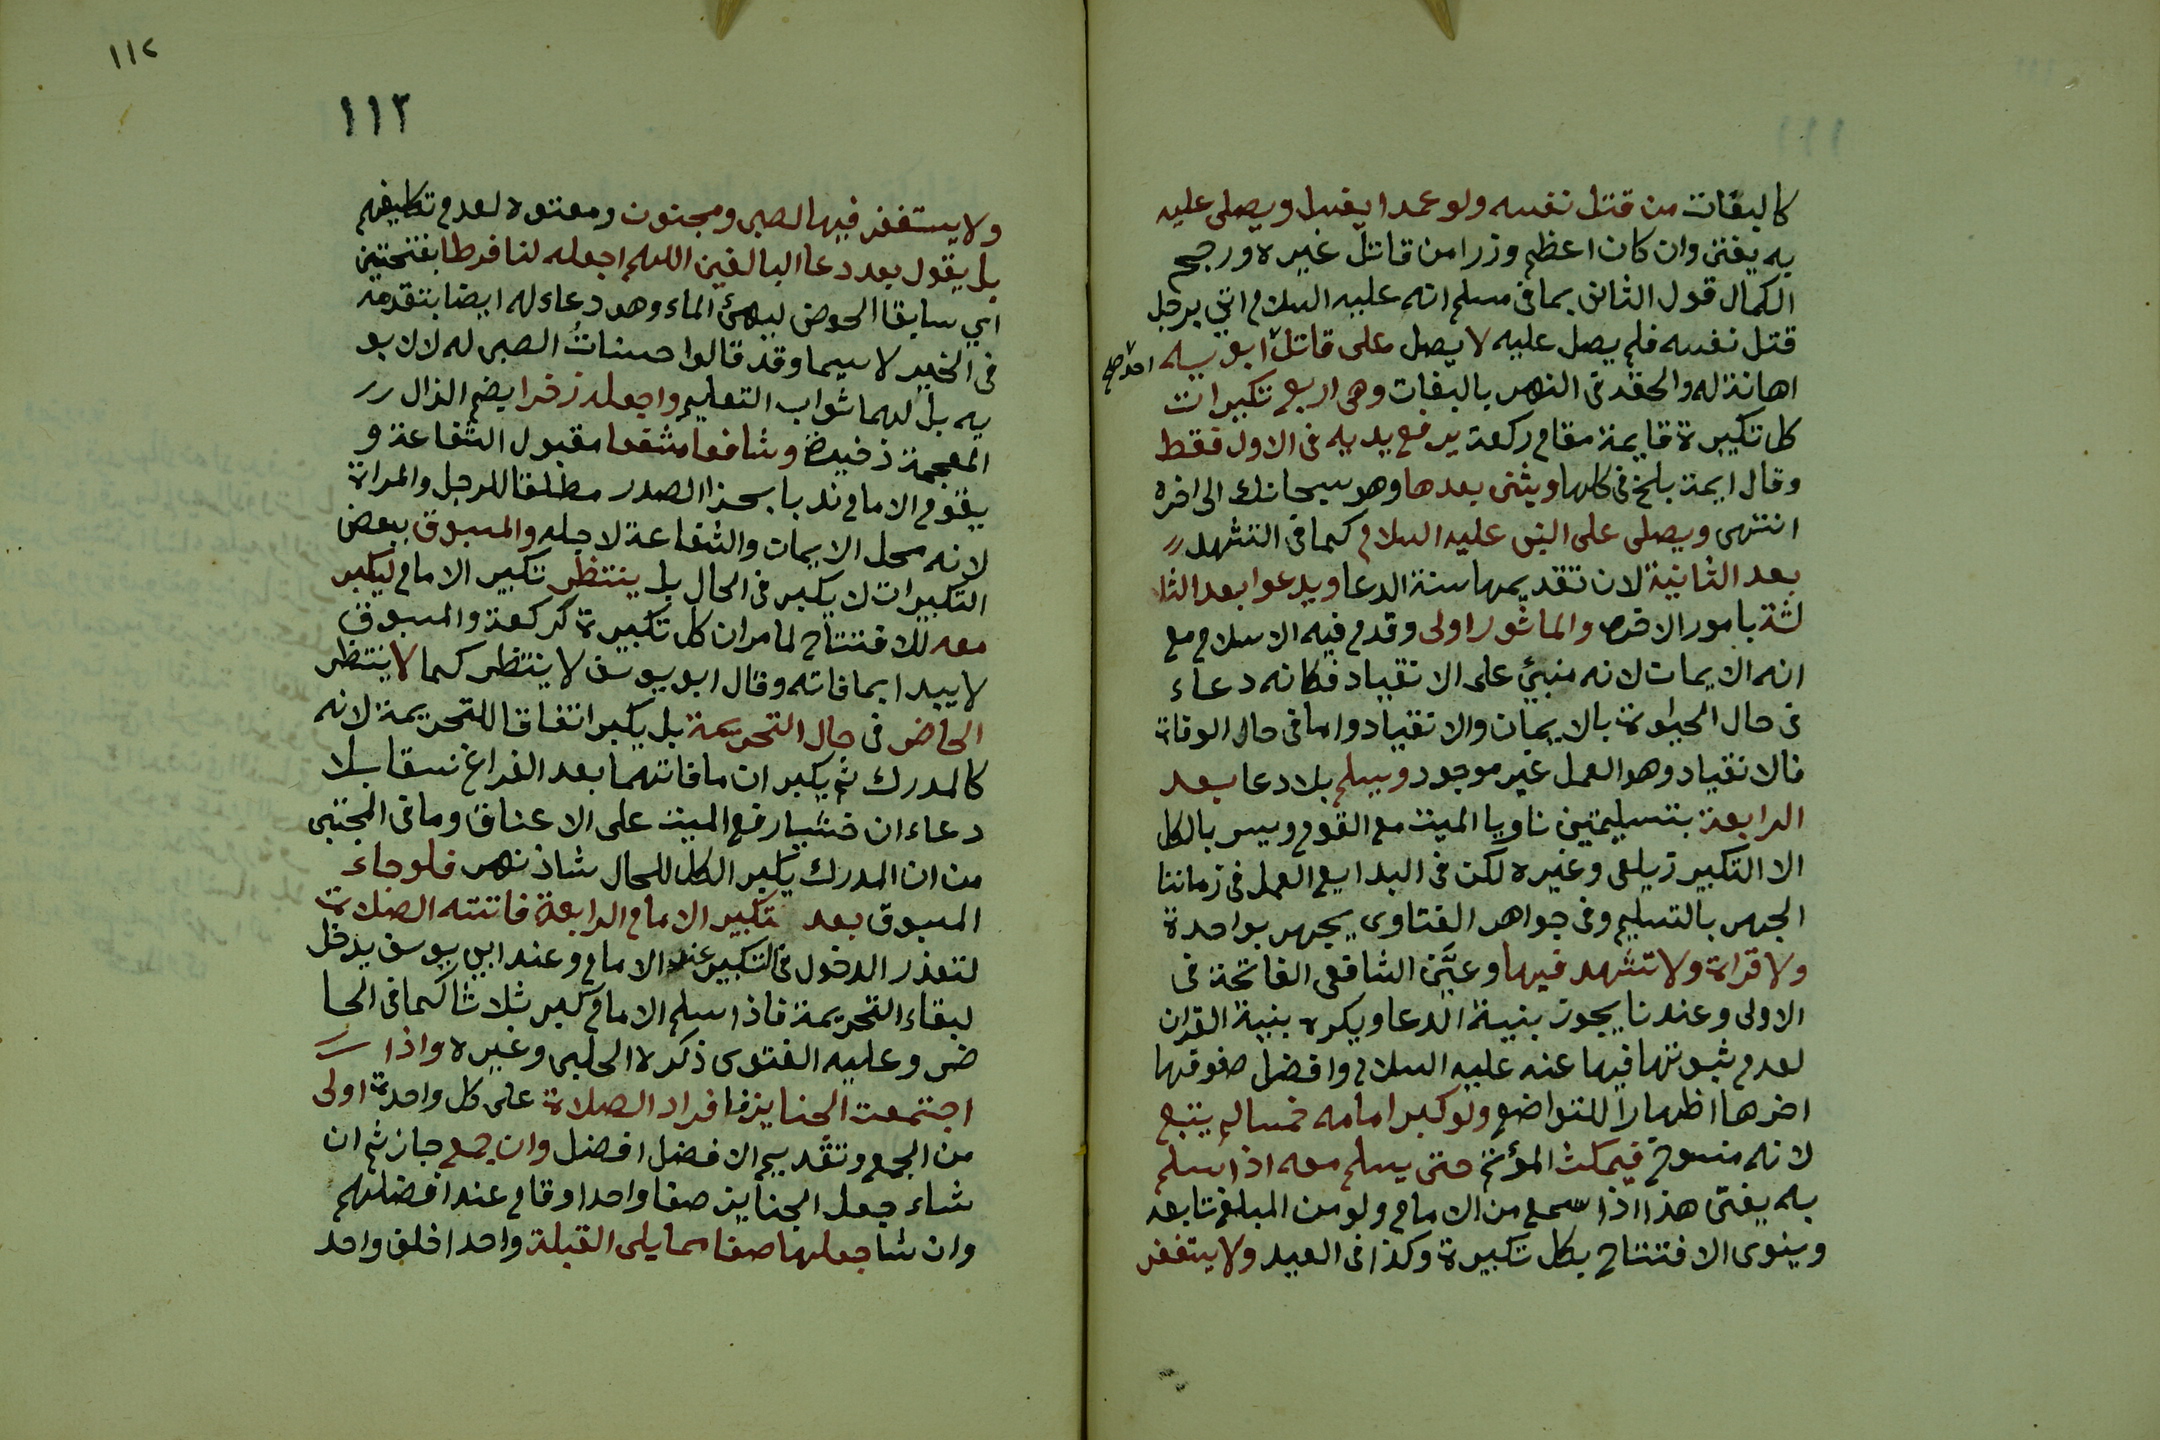 كالبغات من قتل نفسه ولو عمدا يغسل ويصلى عليه
به يفتى وان كان اعظم وزرا من قاتل غيره ورجح
الكمال قول الثانى بما فى مسلم انه عليه السلام اتى برجل
قتل نفسه فلم يصل عليه لا يصل على قاتل ابويه
احد صح
اهانة له والحقه فى النهر بالبغات وهى اربع تكبيرات
كل تكبيرة قايمة مقام ركعة يرفع يديه فى الاول فقط
وقال ايمة بلخ فى كلها ويثنى بعدها وهو سبحانك الى اخره
انتهى ويصلى على النبى عليه السلام كما فى التشهد
بعد الثانية لان تقديمها سنة الدعا ويدعوا بعد الثا
لثة بامور الاخره والماثور اولى وقدم فيه الاسلام مع
انه الايمات لانه منبئ على الانقياد فكانه دعاء
فى حال الحيوة بالايمان والانقياد واما فى حال الوفاة
فالانقياد وهو العمل غير موجود ويسلم بلا دعا بعد
الرابعة بتسليمتين ناويا الميت مع القوم ويسر بالكل
الا التكبير زيلعى وغيره لكن فى البدايع العمل فى زماننا
الجهر بالتسليم وفى جواهر الفتاوى يجهر بواحدة
ولا قراة ولا تشهد فيها وعيّن الشافعى الفاتحة فى
الاولى وعندنا يجوز بنية الدعا ويكره بنية القران
لعدم ثبوتها فيها عنه عليه السلام وافضل صفوفها
اخرها اظهارا للتواضع ولو كبر امامه خمسا لم يتبع
لانه منسوخ فيمكث المؤتم حتى يسلم معه اذا سلم
به يفتى هذا اذا سمع من الامام ولو من المبلغ تابعه
وينوى الافتتاح بكل تكبيرة وكذا فى العيد ولا يستغفر
١١٢
١١٢
ولا يستغفر فيها لصبى ومجنون ومعتوه لعدم تكليفهم
بل يقول بعد دعا البالغين اللهم اجعله لنا فرطا بفتحتين
اي سابقا الحوض ليهئ الماء وهو دعاء له ايضا بتقدمه
فى الخير لا سيما وقد قالوا حسناتُ الصبى له لا لابو
يه بل لهما ثواب التعليم واجعله ذخرا بضم الذال
المعجمة ذخيرة وشافعا مشفعا مقبول الشفاعة و
يقوم الامام ندبا بحذا الصدر مطلقا للرجل والمراة
لانه محل الايمات والشفاعة لاجله والمسبوق ببعض
التكبيرات لا يكبر فى الحال بل ينتظر تكبير الامام ليكبر
معه للافتتاح لما مر ان كل تكبيرة كركعة والمسبوق
لا يبدا بما فاته وقال ابو يوسف لا ينتظر كما لا ينتظر
الحاضر فى حال التحريمة بل يكبر اتفاقا للتحريمة لانه
كالمدرك ثم يكبران ما فاتهما بعد الفراغ نسقا بلا
دعاء ان خشيا رفع الميت على الاعناق وما فى المجتبى
من ان المدرك يكبر الكل للحال شاذ نهر فلو جاء
المسبوق بعد تكبير الامام الرابعة فاتته الصلاة
لتعذر الدخول فى التكبير عند الامام وعند ابى يوسف يدخل
لبقاء التحريمة فاذا سلم الامام كبر ثلاثا كما فى الحا
ضر وعليه الفتوى ذكره الحلبى وغيره واذا
اجتمعت الجنايز فافراد الصلاة على كل واحدة اولى
من الجمع وتقديم الافضل افضل وان جمع جاز ثم ان
شاء جعل الجنايز صفا واحدا وقام عند افضلهم
وان شا جعلها صفا مما يلى القبلة واحدا خلف واحد